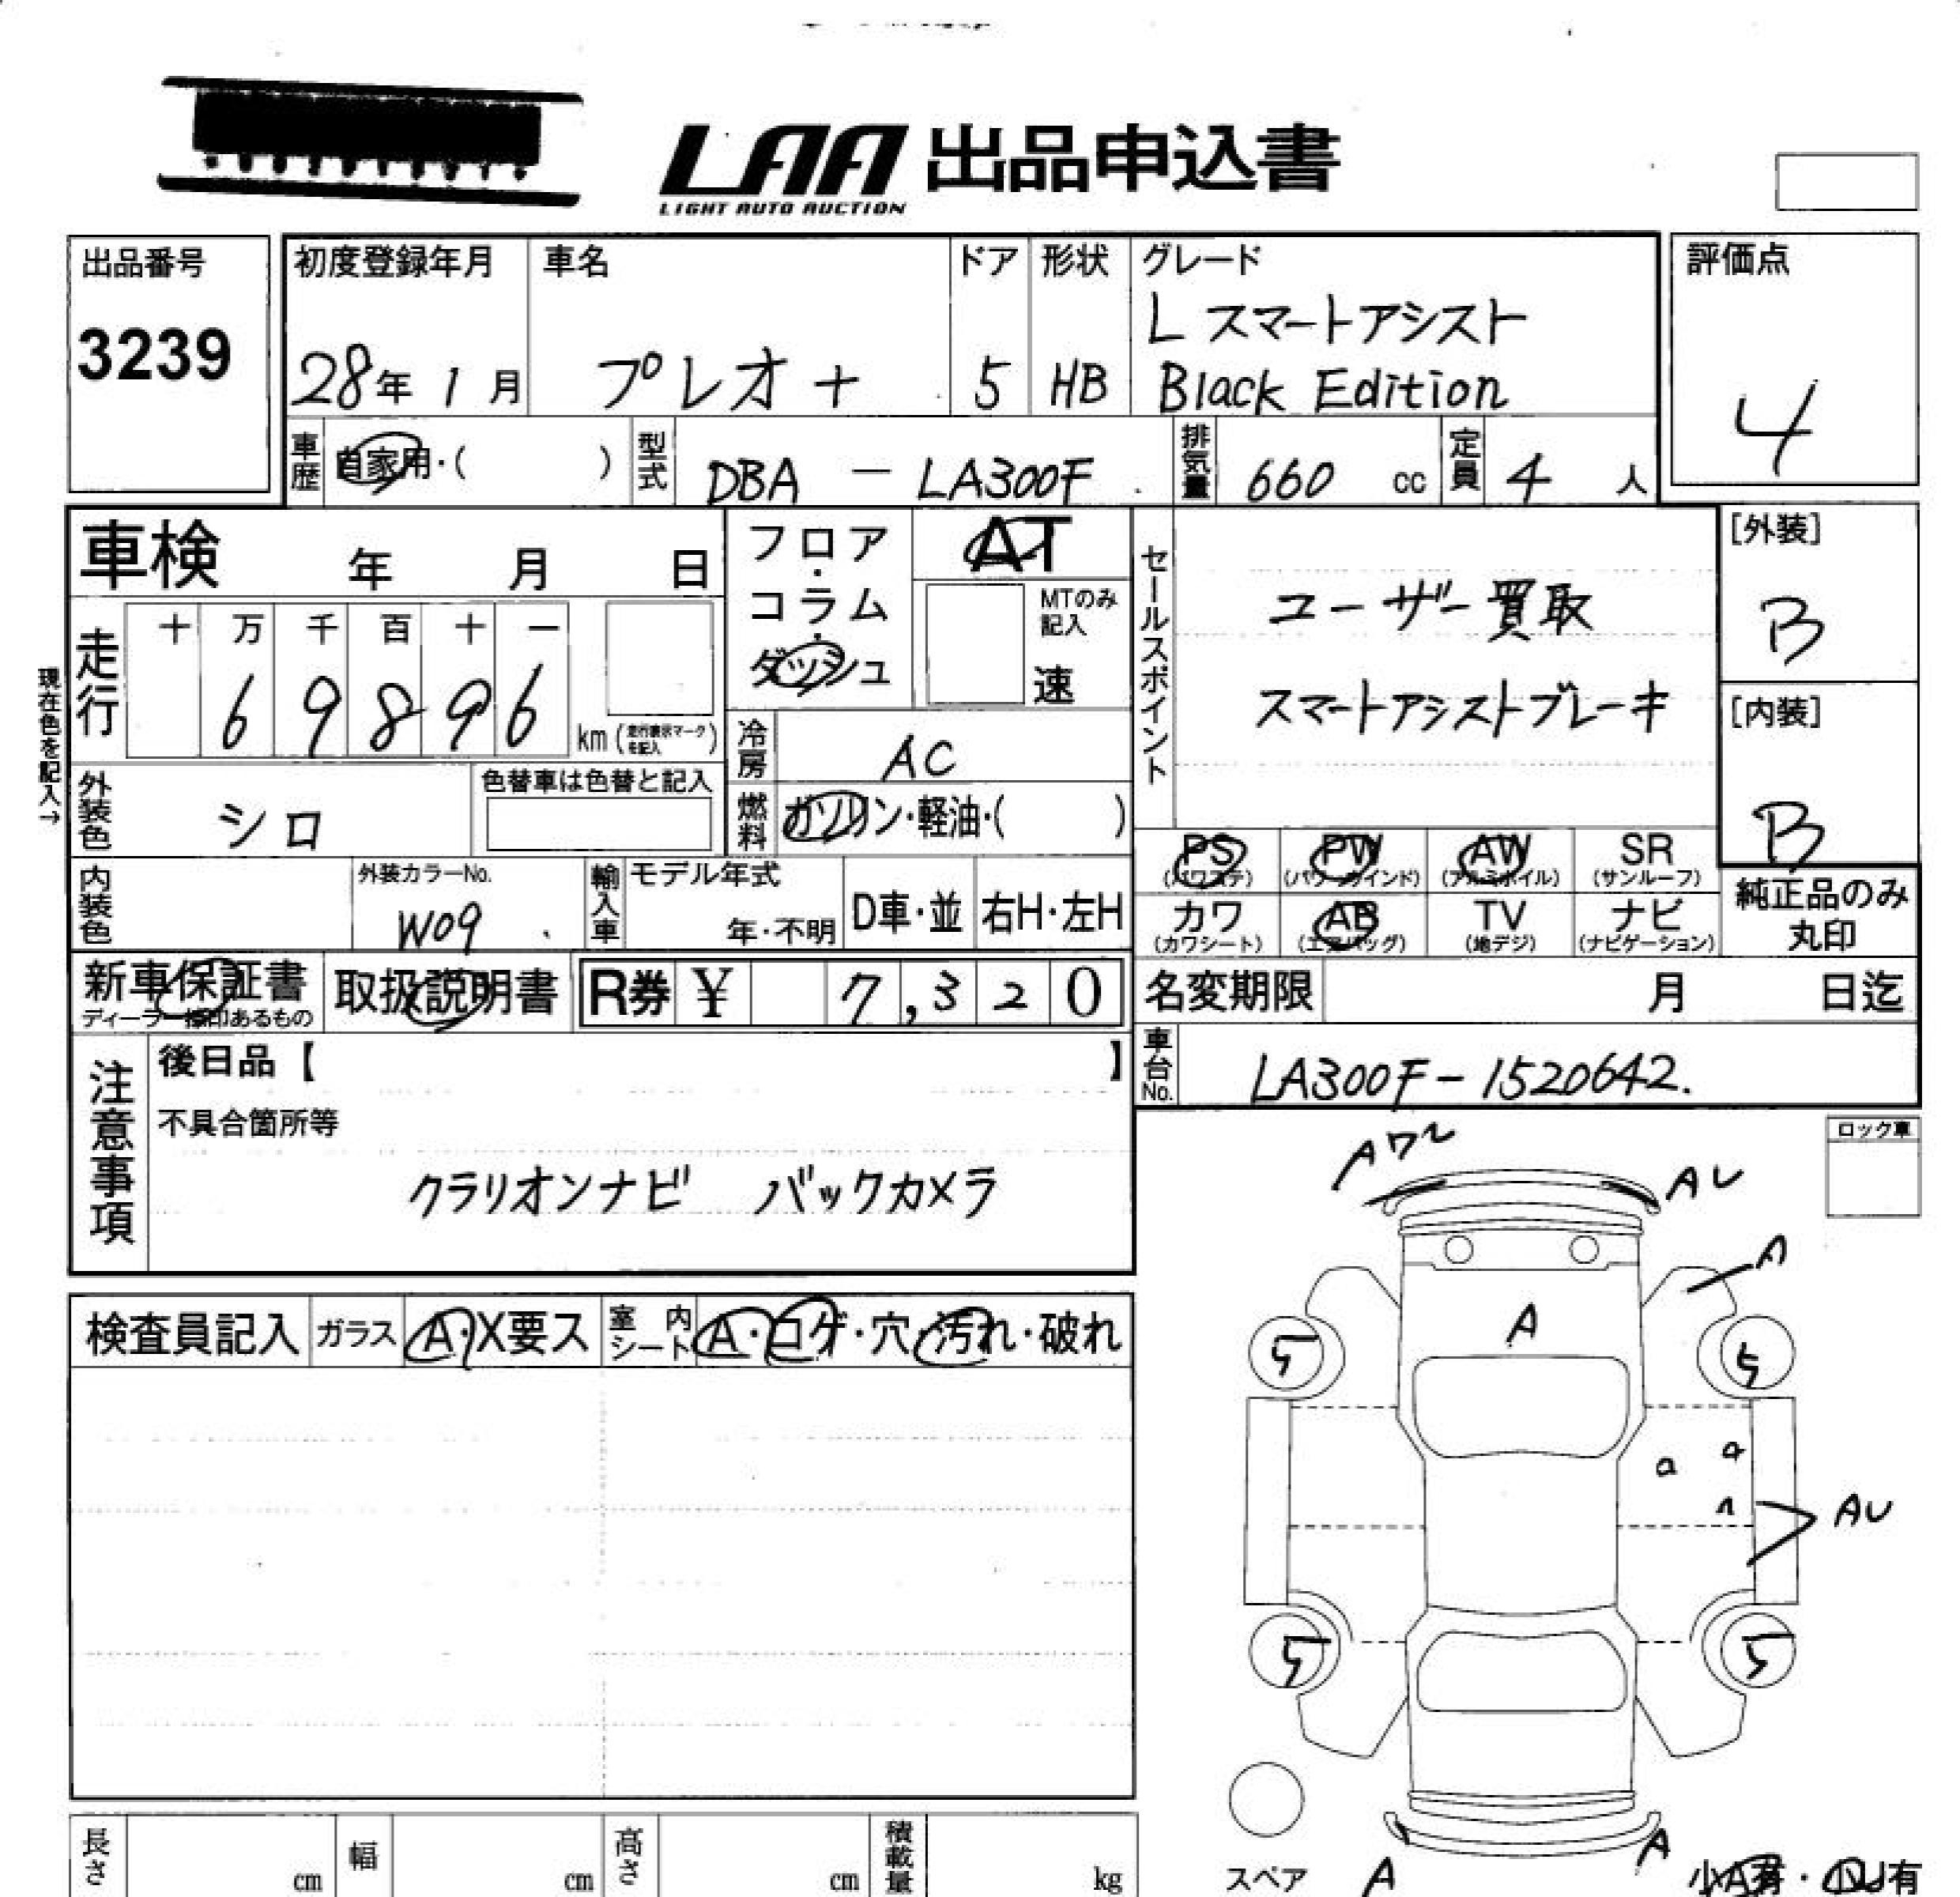 LAA 出品申込書
LIGHT AUTO AUCTION
出品番号
3239
初度登録年月
28年 1月
車名
プレオ +
ドア
5
形状
HB
グレード
L スマートアシスト
Black Edition
評価点
4
車歴
自家用・( )
型式
DBA — LA300F
排気量
660 cc
定員
4 人
車検 年 月 日
走行
十 万 千 百 十 一
6 9 8 9 6
km (走行表示マークを記入)
現在色を記入→
外装色
シロ
色替車は色替と記入
内装色
外装カラーNo.
W09
フロア・コラム・ダッシュ
AT
MTのみ記入
速
冷房
AC
燃料
ガソリン・軽油・( )
輸入車
モデル年式
年・不明
D車・並
右H・左H
セールスポイント
ユーザー買取
スマートアシストブレーキ
[外装]
B
[内装]
B
PS (パワステ)
PW (パワーウインド)
AW (アルミホイル)
SR (サンルーフ)
カワ (カワシート)
AB (エアバッグ)
TV (地デジ)
ナビ (ナビゲーション)
純正品のみ丸印
新車保証書
ディーラー捺印あるもの
取扱説明書
R券 ¥ 7,320
名変期限 月 日迄
車台No.
LA300F-1520642.
注意事項
後日品【 】
不具合箇所等
クラリオンナビ バックカメラ
ロック車
検査員記入
ガラス A・X要ス
室内シート A・コゲ・穴・汚れ・破れ
Aワレ
AU
A
A
5
5
a
a
AU
5
5
スペア
A
A
小A有・小U有
長さ cm
幅 cm
高さ cm
積載量 kg